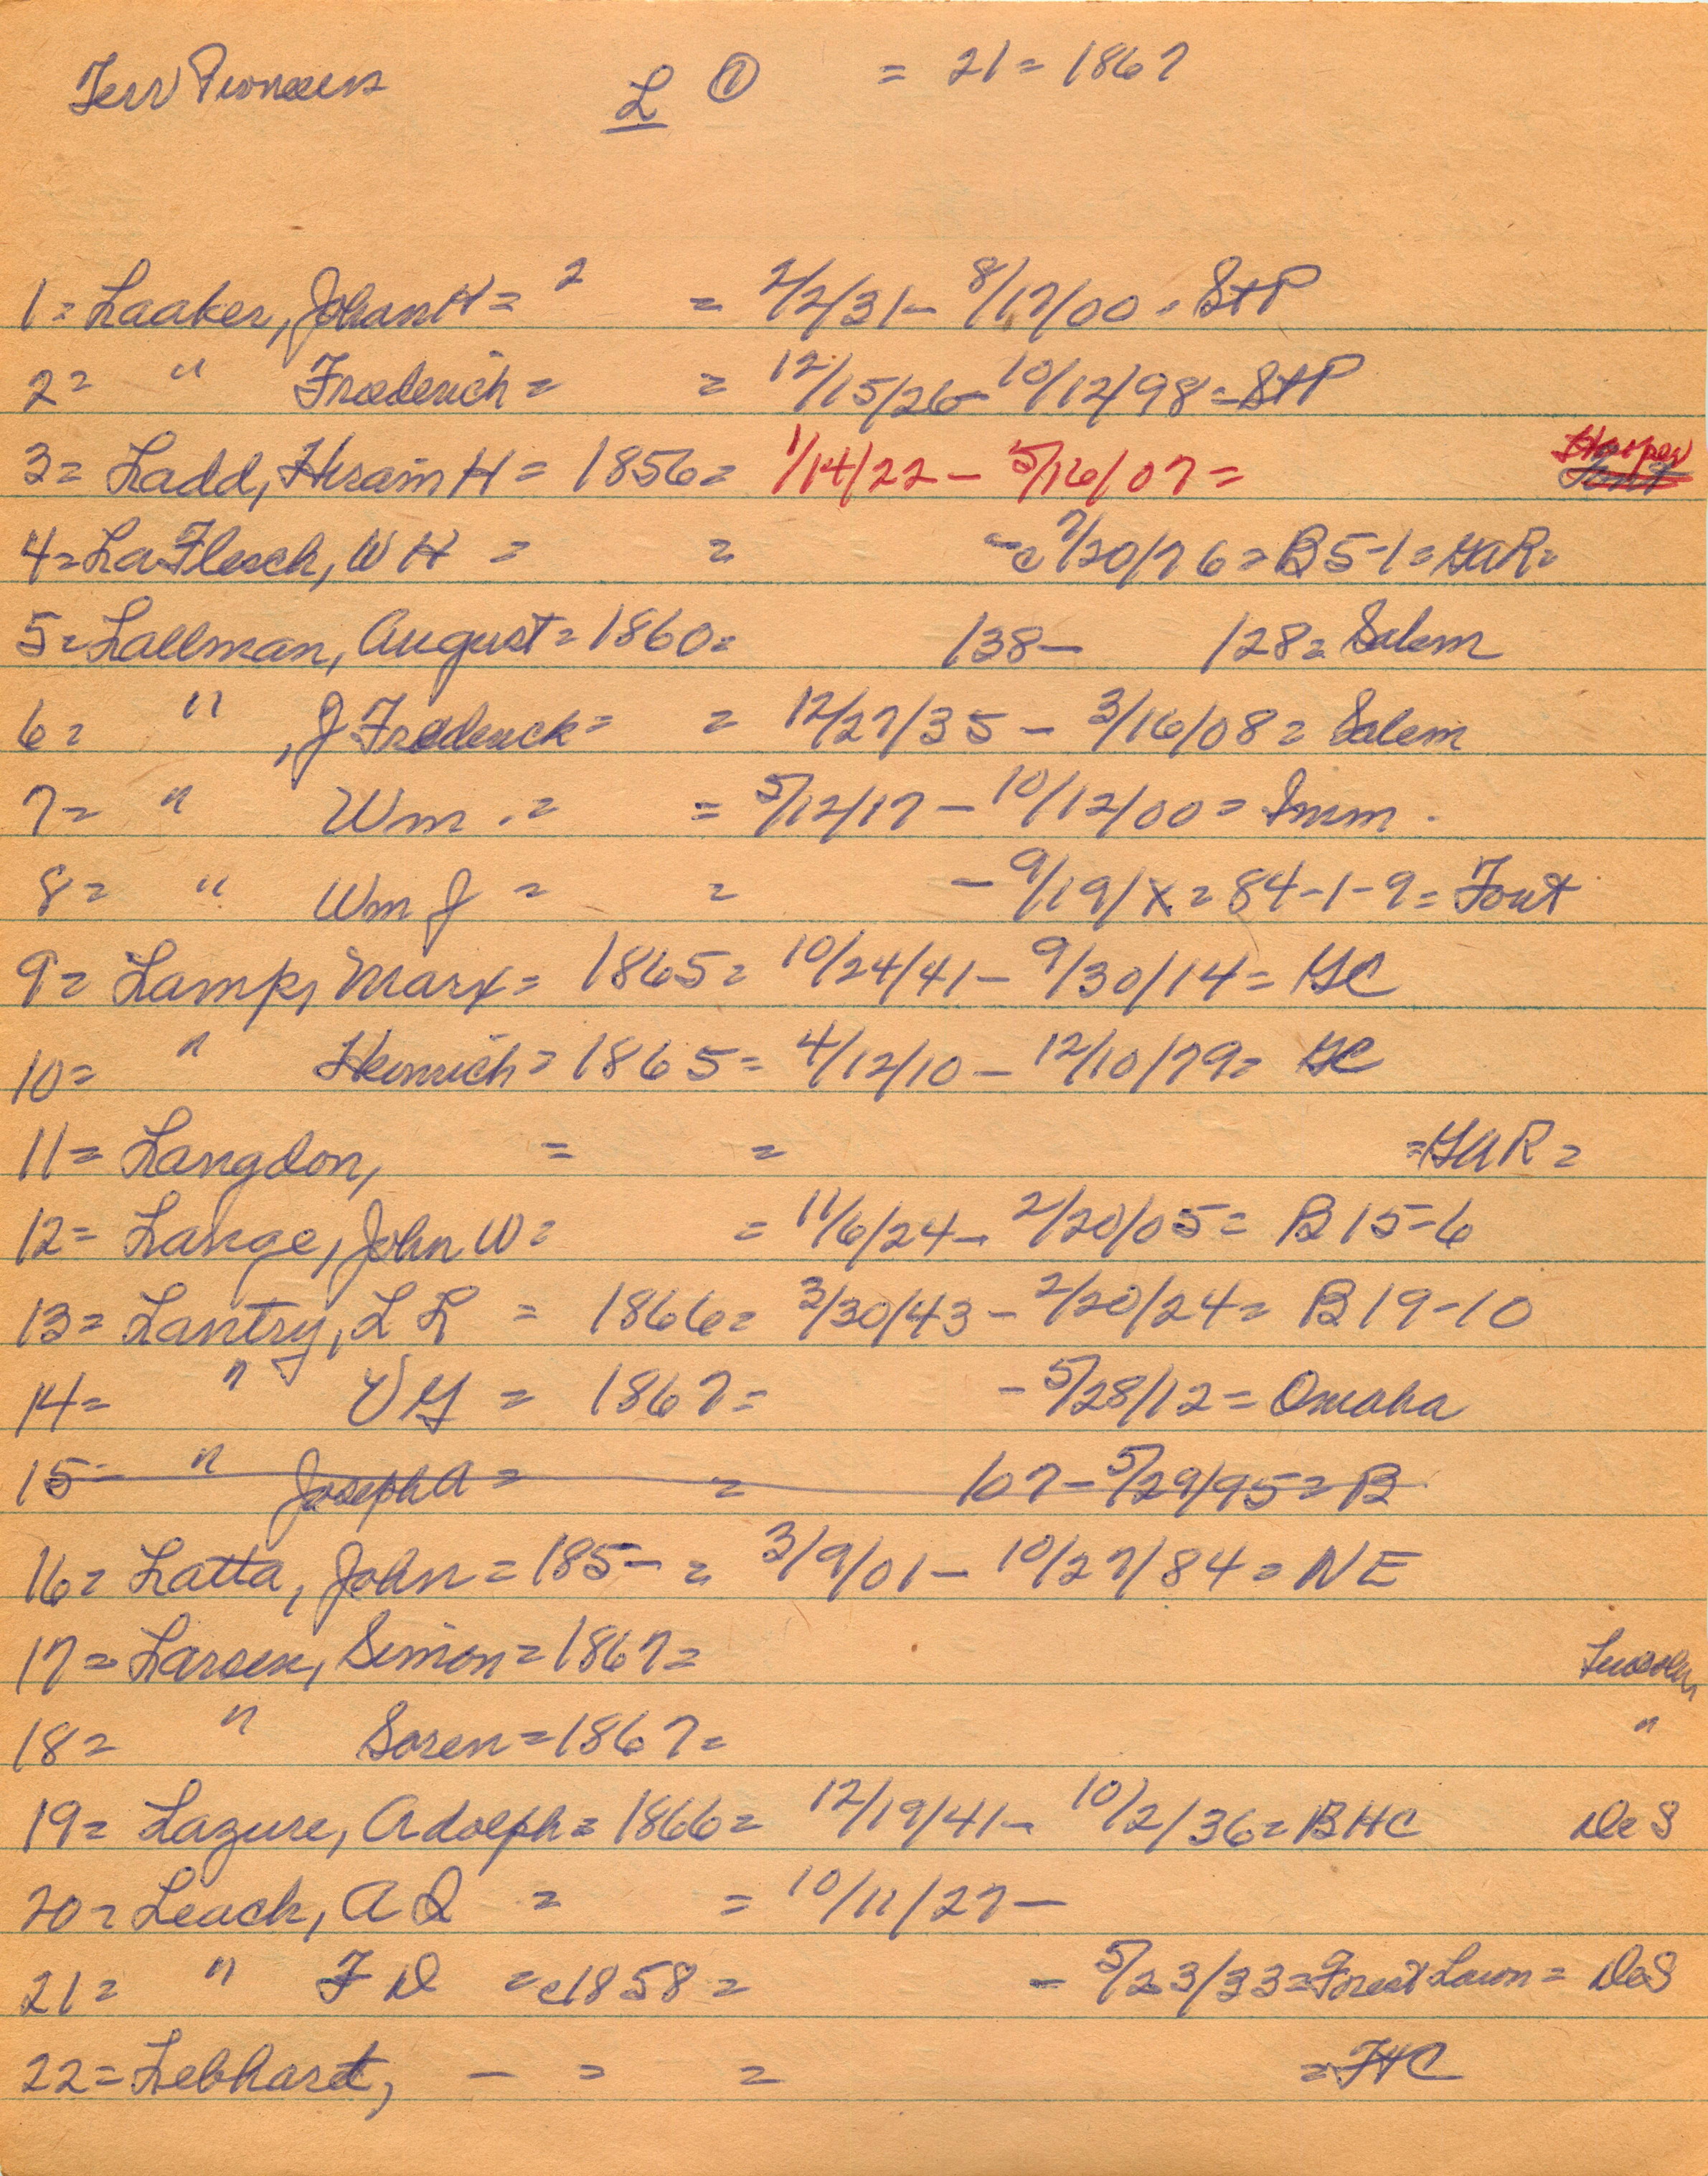 Terr Pioneers L ① = 21 = 1867
1= Laaker, Johan H = 2 = 2/2/31 - 8/17/00 = St P
2= " Frederich = = 12/15/26 - 10/12/98 = St P
3= Ladd, Hiram H = 1856 = 1/14/22 - 5/16/07 =
4= LaFlesch, W H = = - c 7/20/76 = B 5-1 = GAR =
5= Lallman, August = 1860 = 138 - 128 = Salem
6= " , J Frederick = = 12/27/35 - 3/16/08 = Salem
7= " Wm . = = 5/12/17 - 10/12/00 = Imm .
8= " Wm J = = - 9/19/X = 84-1-9 = Font
9= Lamp, Marx = 1865 = 10/24/41 - 9/30/14 = GC
10= " Heinrich = 1865 = 4/12/10 - 12/10/79 = GC
11= Langdon, = = = GAR =
12= Lange, John W = = 11/6/24 - 2/20/05 = B 15-6
13= Lantry, L L = 1866 = 3/30/43 - 2/20/24 = B 19-10
14= " V G = 1867 = - 5/28/12 = Omaha
15= " Joseph A = = 107 - 5/29/95 = B
16= Latta, John = 185- = 3/9/01 - 10/27/84 = NE
17= Larsen, Simon = 1867 = Lincoln
18= " Soren = 1867 = "
19= Lazure, Adolph = 1866 = 12/19/41 - 10/2/36 = BHC DeS
20= Leach, A D = = 10/11/27 -
21= " F D = c1858 = - 5/23/33 = Forest Lawn = DeS
22= Lebhart, - = = = FHC